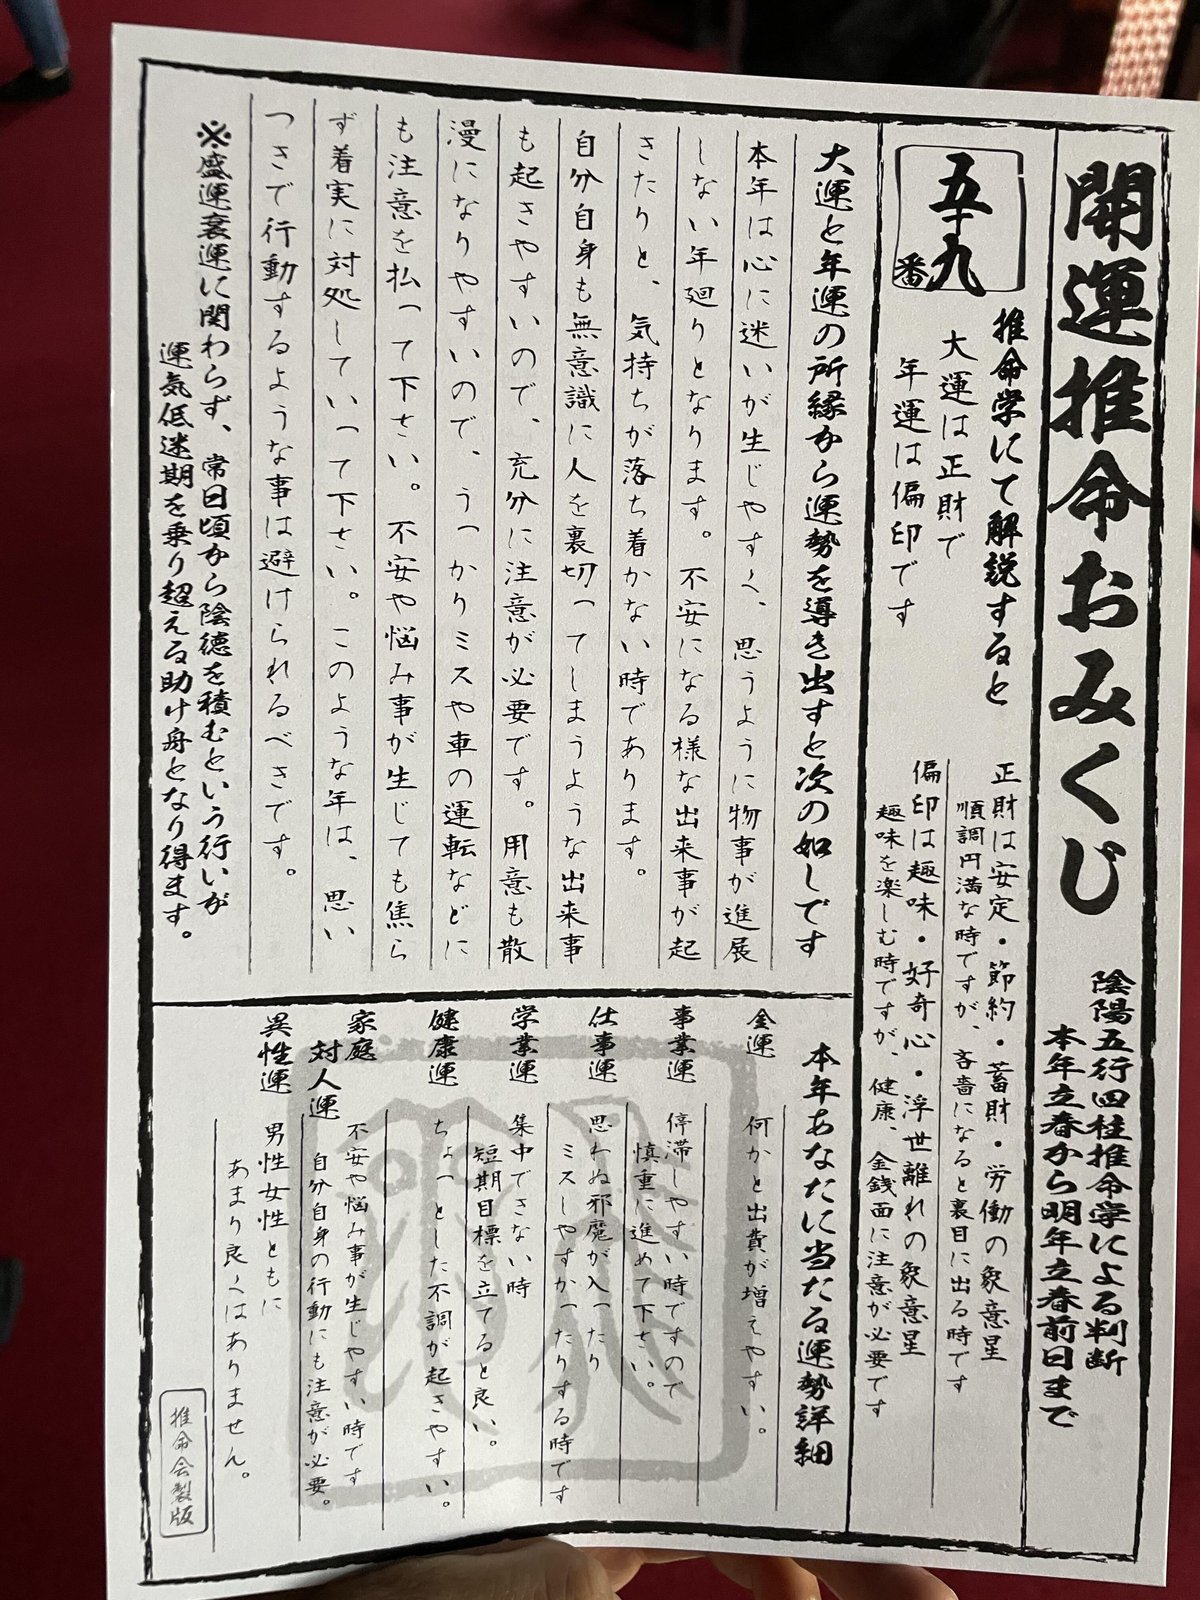 開運推命おみくじ
陰陽五行四柱推命学による判断
本年立春から明年立春前日まで
五十九番
推命学にて解説すると
大運は正財で
年運は偏印です
正財は安定・節約・蓄財・労働の象意星
順調円満な時ですが、吝嗇になると裏目に出る時です
偏印は趣味・好奇心・浮世離れの象意星
趣味を楽しむ時ですが、健康、金銭面に注意が必要です
大運と年運の所縁から運勢を導き出すと次の如しです
本年は心に迷いが生じやすく、思うように物事が進展
しない年廻りとなります。不安になる様な出来事が起
きたりと、気持ちが落ち着かない時であります。
自分自身も無意識に人を裏切ってしまうような出来事
も起きやすいので、充分に注意が必要です。用意も散
漫になりやすいので、うっかりミスや車の運転などに
も注意を払って下さい。不安や悩み事が生じても焦ら
ず着実に対処していって下さい。このような年は、思い
つきで行動するような事は避けられるべきです。
※盛運衰運に関わらず、常日頃から陰徳を積むという行いが
運気低迷期を乗り超える助け舟となり得ます。
本年あなたに当たる運勢詳細
金運
何かと出費が増えやすい。
事業運
停滞しやすい時ですので
慎重に進めて下さい。
仕事運
思わぬ邪魔が入ったり
ミスしやすかったりする時です
学業運
集中できない時
短期目標を立てると良い。
健康運
ちょっとした不調が起きやすい。
家庭
対人運
不安や悩み事が生じやすい時です
自分自身の行動にも注意が必要。
異性運
男性女性ともに
あまり良くはありません。
推命会製版